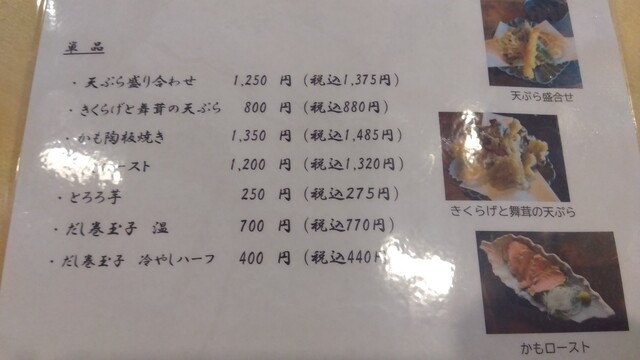 単品
・天ぷら盛り合わせ 1,250 円（税込1,375円）
・きくらげと舞茸の天ぷら 800 円（税込880円）
・かも陶板焼き 1,350 円（税込1,485円）
ースト 1,200 円（税込1,320円）
・とろろ芋 250 円（税込275円）
・だし巻玉子 温 700 円（税込770円）
・だし巻玉子 冷やしハーフ 400 円（税込440円
天ぷら盛合せ
きくらげと舞茸の天ぷら
かもロースト